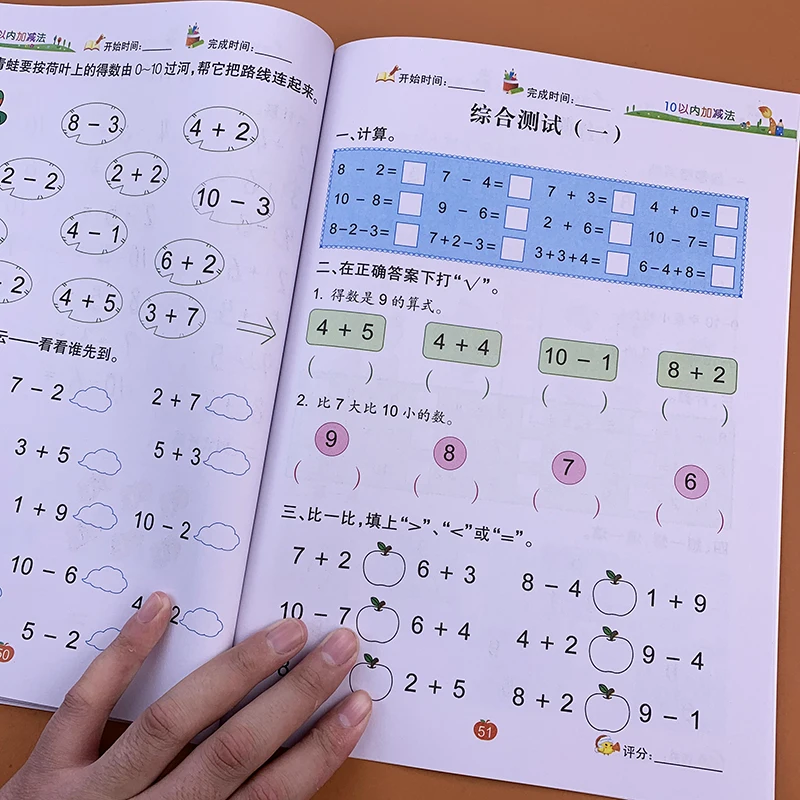 以内加减法
开始时间:
完成时间:
青蛙要按荷叶上的得数由 0~10 过河,帮它把路线连起来。
8 － 3
4 ＋ 2
2 － 2
2 ＋ 2
10 － 3
4 － 1
6 ＋ 2
－ 2
4 ＋ 5
3 ＋ 7
云——看看谁先到。
7 － 2
2 ＋ 7
3 ＋ 5
5 ＋ 3
1 ＋ 9
10 － 2
10 － 6
4
2
5 － 2
50
开始时间:
完成时间:
10以内加减法
综合测试（一）
一、计算。
8 － 2＝ 7 － 4＝ 7 ＋ 3＝ 4 ＋ 0＝
10 － 8＝ 9 － 6＝ 2 ＋ 6＝ 10 － 7＝
8－2－3＝ 7＋2－3＝ 3＋3＋4＝ 6－4＋8＝
二、在正确答案下打“√”。
1. 得数是 9 的算式。
4 ＋ 5 4 ＋ 4 10 － 1 8 ＋ 2
( ) ( ) ( ) ( )
2. 比 7 大比 10 小的数。
9 8 7 6
( ) ( ) ( ) ( )
三、比一比,填上“>”、“<”或“=”。
7 ＋ 2 6 ＋ 3 8 － 4 1 ＋ 9
10 － 7 6 ＋ 4 4 ＋ 2 9 － 4
2 ＋ 5 8 ＋ 2 9 － 1
51
评分: